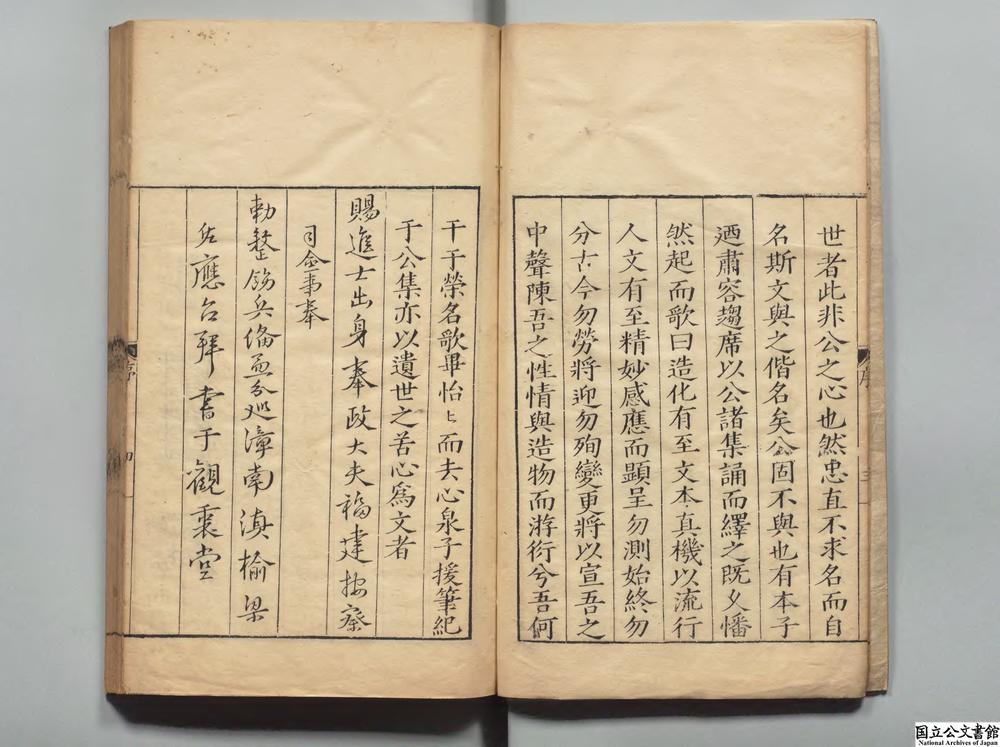 世者此非公之心也然忠直不求名而自
名斯文與之偕名矣公固不與也有本子
迺肅容趨席以公諸集誦而繹之既乂幡
然起而歌曰造化有至文本真機以流行
人文有至精妙感應而顕呈勿測始終勿
分古今勿勞將迎勿殉變更將以宣吾之
中聲陳吾之性情與造物而游衍兮吾何
序
三
干于榮名歌畢怡〻而去心泉子援筆紀
于公集亦以遺世之苦心爲文者
賜進士出身奉政大夫福建按察
司僉事奉
勅整飭兵備兼分巡漳南滇榆梁
佐應台拜書于觀裏堂
序
四
国立公文書館
National Archives of Japan